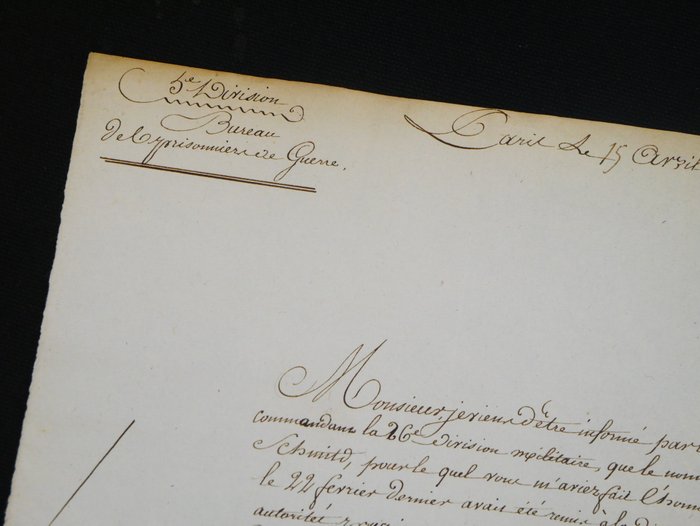 5e Division
Bureau
des prisonniers de Guerre.
Paris Le 15 Avril
Monsieur, je viens d'être informé par
commandant la 26e division militaire, que le nom
Schmitd, pour le quel vous m'aviez fait l'hon
le 22 fevrier dernier avait été remis à la
autorités